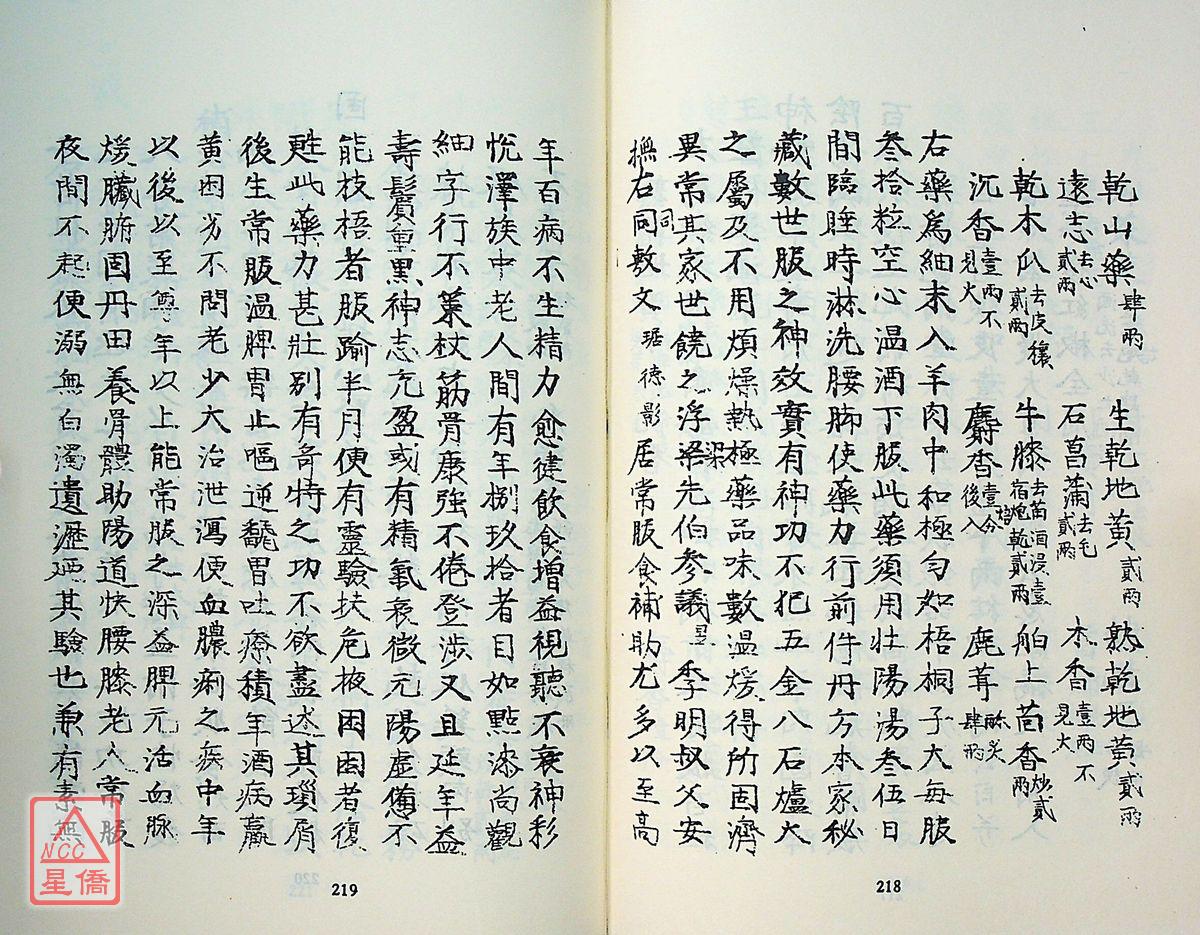 乾山藥肆兩 生乾地黃貳兩 熟乾地黃貳兩
遠志去心貳兩 石菖蒲去毛貳兩 木香壹兩不見火
乾木瓜去皮穰貳兩 牛膝去苗酒浸壹宿焙乾貳兩 舶上茴香炒貳兩
沉香壹兩不見火 麝香壹分後入 鹿茸酥炙肆兩
右藥為細末入羊肉中和極勻如梧桐子大每服
叁拾粒空心温酒下服此藥須用壯陽湯叁伍日
間臨睡時淋洗腰腳使藥力行前件丹方本家秘
藏數世服之神效實有神功不犯五金八石爐火
之屬及不用煩燥熱極藥品味數温煖得所固濟
異常其家世饒之浮梁梁先伯參議 李明叔父安
撫右同同敷文琚德影居常服食補助尤多以至高
218
年百病不生精力愈健飲食增益視聽不衰神彩
悅澤族中老人間有年捌玖拾者目如點漆尚觀
細字行不策杖筋骨康強不倦登涉又且延年益
壽鬢重黑神志充盈或有精氣衰微元陽虛憊不
能枝梧者服踰半月便有靈驗扶危拔困困者復
甦此藥力甚壯別有奇特之功不欲盡述其瑣屑
後生常服温脾胃止嘔逆飜胃吐瘵積年酒病羸
黃困劣不問老少大治泄瀉便血膿痢之疾中年
以後以至尊年以上能常服之深益脾元活血脉
煖臟腑固丹田養骨體助陽道快腰膝老人常服
夜間不起便溺無白濁遺瀝廼其驗也兼有素無
219
220
NCC
星僑